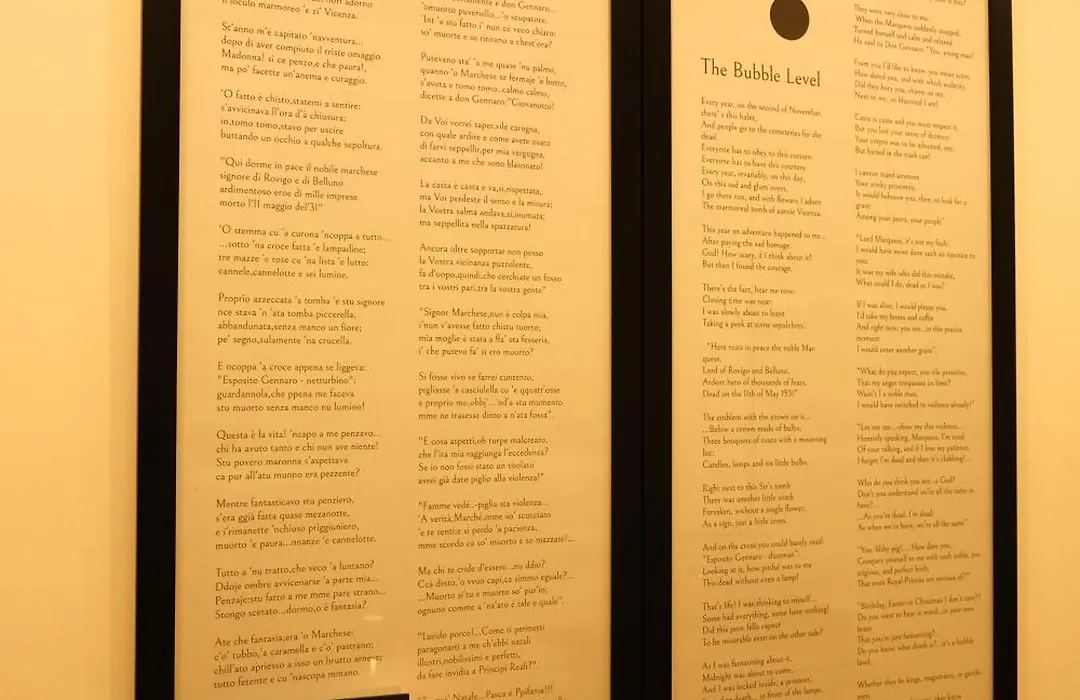 'l loculo marmoreo 'e zi' Vicenza.
St'anno m'é capitato 'navventura...
dopo di aver compiuto il triste omaggio.
Madonna! si ce penzo,e che paura!,
ma po' facette un'anema e curaggio.
'O fatto è chisto,statemi a sentire:
s'avvicinava ll'ora d'à chiusura:
io,tomo tomo,stavo per uscire
buttando un occhio a qualche sepoltura.
"Qui dorme in pace il nobile marchese
signore di Rovigo e di Belluno
ardimentoso eroe di mille imprese
morto l'11 maggio del'31"
'O stemma cu 'a curona 'ncoppa a tutto...
...sotto 'na croce fatta 'e lampadine;
tre mazze 'e rose cu 'na lista 'e lutto:
cannele,cannelotte e sei lumine.
Proprio azzeccata 'a tomba 'e stu signore
nce stava 'n 'ata tomba piccerella,
abbandunata,senza manco un fiore;
pe' segno,sulamente 'na crucella.
E ncoppa 'a croce appena se liggeva:
"Esposito Gennaro - netturbino":
guardannola,che ppena me faceva
stu muorto senza manco nu lumino!
Questa è la vita! 'ncapo a me penzavo...
chi ha avuto tanto e chi nun ave niente!
Stu povero maronna s'aspettava
ca pur all'atu munno era pezzente?
Mentre fantasticavo stu penziero,
s'era ggià fatta quase mezanotte,
e i'rimanette 'nchiuso priggiuniero,
muorto 'e paura...nnanze 'e cannelotte.
Tutto a 'nu tratto,che veco 'a luntano?
Ddoje ombre avvicenarse 'a parte mia...
Penzaje:stu fatto a me mme pare strano...
Stongo scetato...dormo,o è fantasia?
Ate che fantasia;era 'o Marchese:
c'o' tubbo,'a caramella e c'o' pastrano;
chill'ato apriesso a isso un brutto arnese;
tutto fetente e cu 'nascopa mmano.
don Gennaro...
'omuorto puveriello...'o scupatore.
'Int 'a stu fatto i' nun ce veco chiaro:
so' muorte e se ritirano a chest'ora?
Putevano sta' 'a me quase 'nu palmo,
quanno 'o Marchese se fermaje 'e botto,
s'avota e tomo tomo..calmo calmo,
dicette a don Gennaro:"Giovanotto!
Da Voi vorrei saper,vile carogna,
con quale ardire e come avete osato
di farvi seppellir,per mia vergogna,
accanto a me che sono blasonato!
La casta è casta e va,si,rispettata,
ma Voi perdeste il senso e la misura;
la Vostra salma andava,si,inumata;
ma seppellita nella spazzatura!
Ancora oltre sopportar non posso
la Vostra vicinanza puzzolente,
fa d'uopo,quindi,che cerchiate un fosso
tra i vostri pari,tra la vostra gente"
"Signor Marchese,nun è colpa mia,
i'nun v'avesse fatto chistu tuorto;
mia moglie è stata a ffa' sta fesseria,
i' che putevo fa' si ero muorto?
Si fosse vivo ve farrei cuntento,
pigliasse 'a casciulella cu 'e qquatt'osse
e proprio mo,obbj'...'nd'a stu mumento
mme ne trasesse dinto a n'ata fossa".
"E cosa aspetti,oh turpe malcreato,
che l'ira mia raggiunga l'eccedenza?
Se io non fossi stato un titolato
avrei già dato piglio alla violenza!"
"Famme vedé..-piglia sta violenza...
'A verità,Marché,mme so' scucciato
'e te senti;e si perdo 'a pacienza,
mme scordo ca so' muorto e so mazzate!...
Ma chi te cride d'essere...nu ddio?
Ccà dinto,'o vvuo capi,ca simmo eguale?...
...Muorto si'tu e muorto so' pur'io;
ognuno comme a 'na'ato é tale e quale".
"Lurido porco!...Come ti permetti
paragonarti a me ch'ebbi natali
illustri,nobilissimi e perfetti,
da fare invidia a Principi Reali?".
Natale...Pasca e Ppifania!!!
The Bubble Level
Every year, on the second of November,
there' s this habit,
And people go to the cemeteries for the
dead.
Everyone has to obey to this custom;
Everyone has to have this courtesy.
Every year, invariably, on this day,
On this sad and glum event,
I go there too, and with flowers I adorn
The marmoreal tomb of auntie Vicenza.
This year an adventure happened to me...
After paying the sad homage.
God! How scary, if I think about it!
But then I found the courage.
There's the fact, hear me now:
Closing time was near:
I was slowly about to leave
Taking a peek at some sepulchres.
"Here rests in peace the noble Mar-
quess,
Lord of Rovigo and Belluno,
Ardent hero of thousands of feats,
Dead on the 11th of May 1931"
The emblem with the crown on it...
...Below a crown made of bulbs,
Three bouquets of roses with a mourning
list:
Candles, lamps and six little bulbs.
Right next to this Sir's tomb
There was another little tomb
Forsaken, without a single flower,
As a sign, just a little cross.
And on the cross you could barely read:
"Esposito Gennaro - dustman":
Looking at it, how pitiful was to me
This dead without even a lamp!
That's life! I was thinking to myself...
Some had everything, some have nothing!
Did this poor fella expect
To be miserable even on the other side?
As I was fantasizing about it,
Midnight was about to come,
And I was locked inside, a prisoner,
in front of the lamps.
They were very close to me,
When the Marquess suddenly stopped,
Turned himself and calm and relaxed
He said to Don Gennaro: "You, young man!
From you I'd like to know, you mean scum,
How dared you, and with which audacity,
Did they bury you, shame on me,
Next to me, so blazoned I am!
Caste is caste and you must respect it,
But you lost your sense of decency,
Your corpse was to be inhumed, yes;
But buried in the trash can!
I cannot stand anymore
Your stinky proximity,
It would behoove you, then, to look for a
grave
Among your peers, your people"
"Lord Marquess, it's not my fault,
I would have never done such an injustice to
you;
It was my wife who did this mistake,
What could I do, dead as I was?
If I was alive, I would please you,
I'd take my bones and coffin
And right now, you see...in this precise
moment
I would enter another grave".
"What do you expect, you vile primitive,
That my anger trespasses its limit?
Wasn't I a noble man,
I would have switched to violence already!"
"Let me see...show me this violence...
Honestly speaking, Marquess, I'm tired
Of your talking, and if I lose my patience,
I forget I'm dead and then it's clubbing!...
Who do you think you are...a God?
Don't you understand we're all the same in
here?...
...As you're dead, I'm dead;
As when we're born, we're all the same"
"You, filthy pig!...How dare you,
Compare yourself to me with such noble, pre-
stigious, and perfect birth,
That even Royal Princes are envious of?"
"Birthday, Easter or Christmas I don't care!!!
Do you want to bear in mind...in your own
brain
That you're just fantasising?...
Do you know what death is?...it's a bubble
level.
Whether they be kings, magistrates, or gentle-